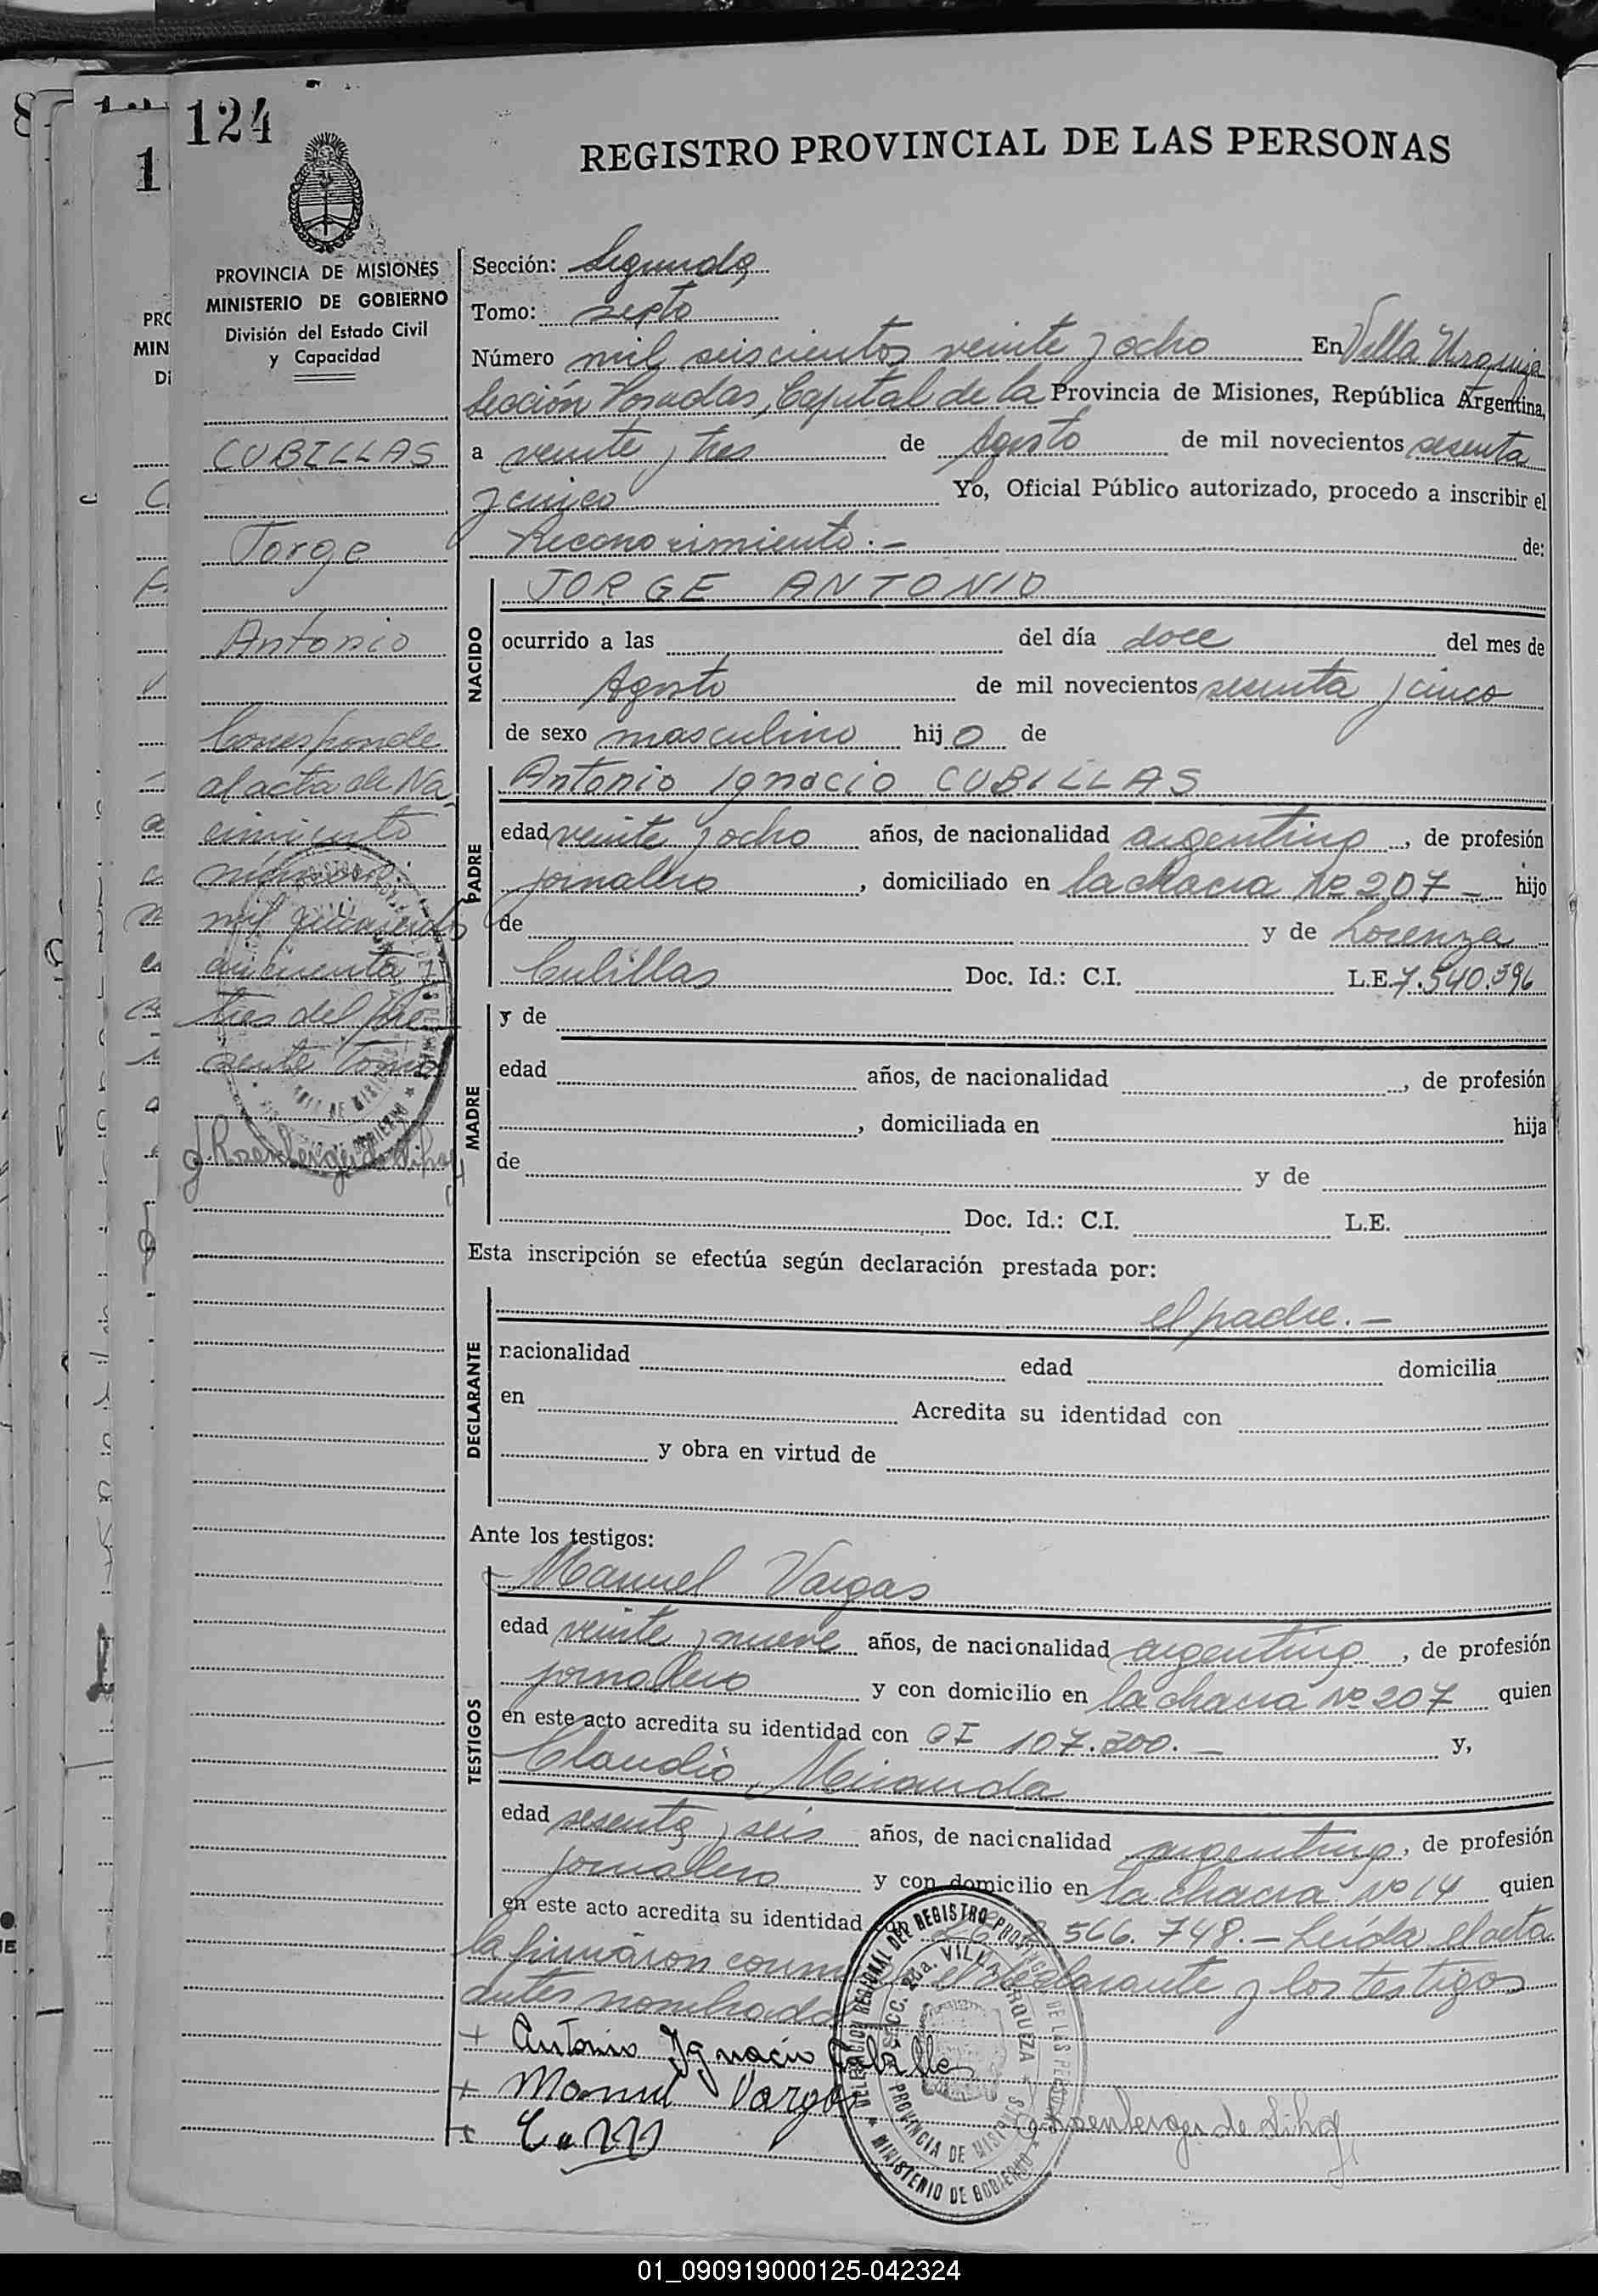 124
REGISTRO PROVINCIAL DE LAS PERSONAS
PROVINCIA DE MISIONES
MINISTERIO DE GOBIERNO
División del Estado Civil
y Capacidad
CUBILLAS
Jorge
Antonio
Corresponde
al acta de Na-
cimiento
número:
mil
cincuenta y
tres del pre
sente tomo
Sección: Segunda
Tomo: sexto
Número mil seiscientos veinte y ocho En Villa Urquiza
Sección Posadas, Capital de la Provincia de Misiones, República Argentina,
a veinte y tres de Agosto de mil novecientos sesenta
y cinco Yo, Oficial Público autorizado, procedo a inscribir el
Reconocimiento.- de:
NACIDO
JORGE ANTONIO
ocurrido a las del día doce del mes de
Agosto de mil novecientos sesenta y cinco
de sexo masculino hijo de
PADRE
Antonio Ignacio CUBILLAS
edad veinte y ocho años, de nacionalidad argentino, de profesión
jornalero, domiciliado en la chacra Nº 207 - hijo
de y de Lorenza
Cubillas Doc. Id.: C.I. L.E. 7.540.596
MADRE
y de
edad años, de nacionalidad , de profesión
, domiciliada en hija
de y de
Doc. Id.: C.I. L.E.
Esta inscripción se efectúa según declaración prestada por:
DECLARANTE
el padre.-
nacionalidad edad domicilia
en Acredita su identidad con
y obra en virtud de
Ante los testigos:
TESTIGOS
Manuel Vargas
edad veinte y nueve años, de nacionalidad argentino, de profesión
jornalero y con domicilio en la chacra Nº 207 quien
en este acto acredita su identidad con CI 107.200.- y,
Claudio Miranda
edad sesenta y seis años, de nacionalidad argentino, de profesión
jornalero y con domicilio en la chacra Nº 14 quien
en este acto acredita su identidad con 566.748.- Leída el acta
la firmaron conmigo el declarante y los testigos
antes nombrados
+ Antonio Ignacio Cubilla
+ Manuel Vargas
+
DELEGACION REGIONAL DEL REGISTRO PROVINCIAL DE LAS PERSONAS
SECC. 2da. VILLA URQUIZA
PROVINCIA DE MISIONES
MINISTERIO DE GOBIERNO
01_090919000125-042324